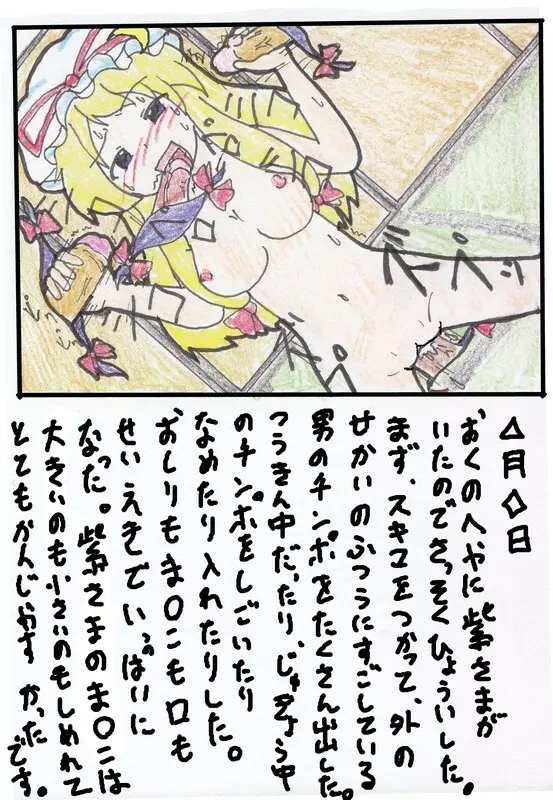 △月◇日
おくのへやに紫さまが
いたのでさっそくひょういした。
まず、スキマをつかって、外の
せかいのふつうにすごしている
男のチンポをたくさん出した。
つうきん中だったり、じゅぎょう中
のチンポをしごいたり
なめたり入れたりした。
おしりもま〇こも口も
せいえきでいっぱいに
なった。紫さまのま〇こは
大きいのも小さいのもしめれて
とてもかんじやすかったです。